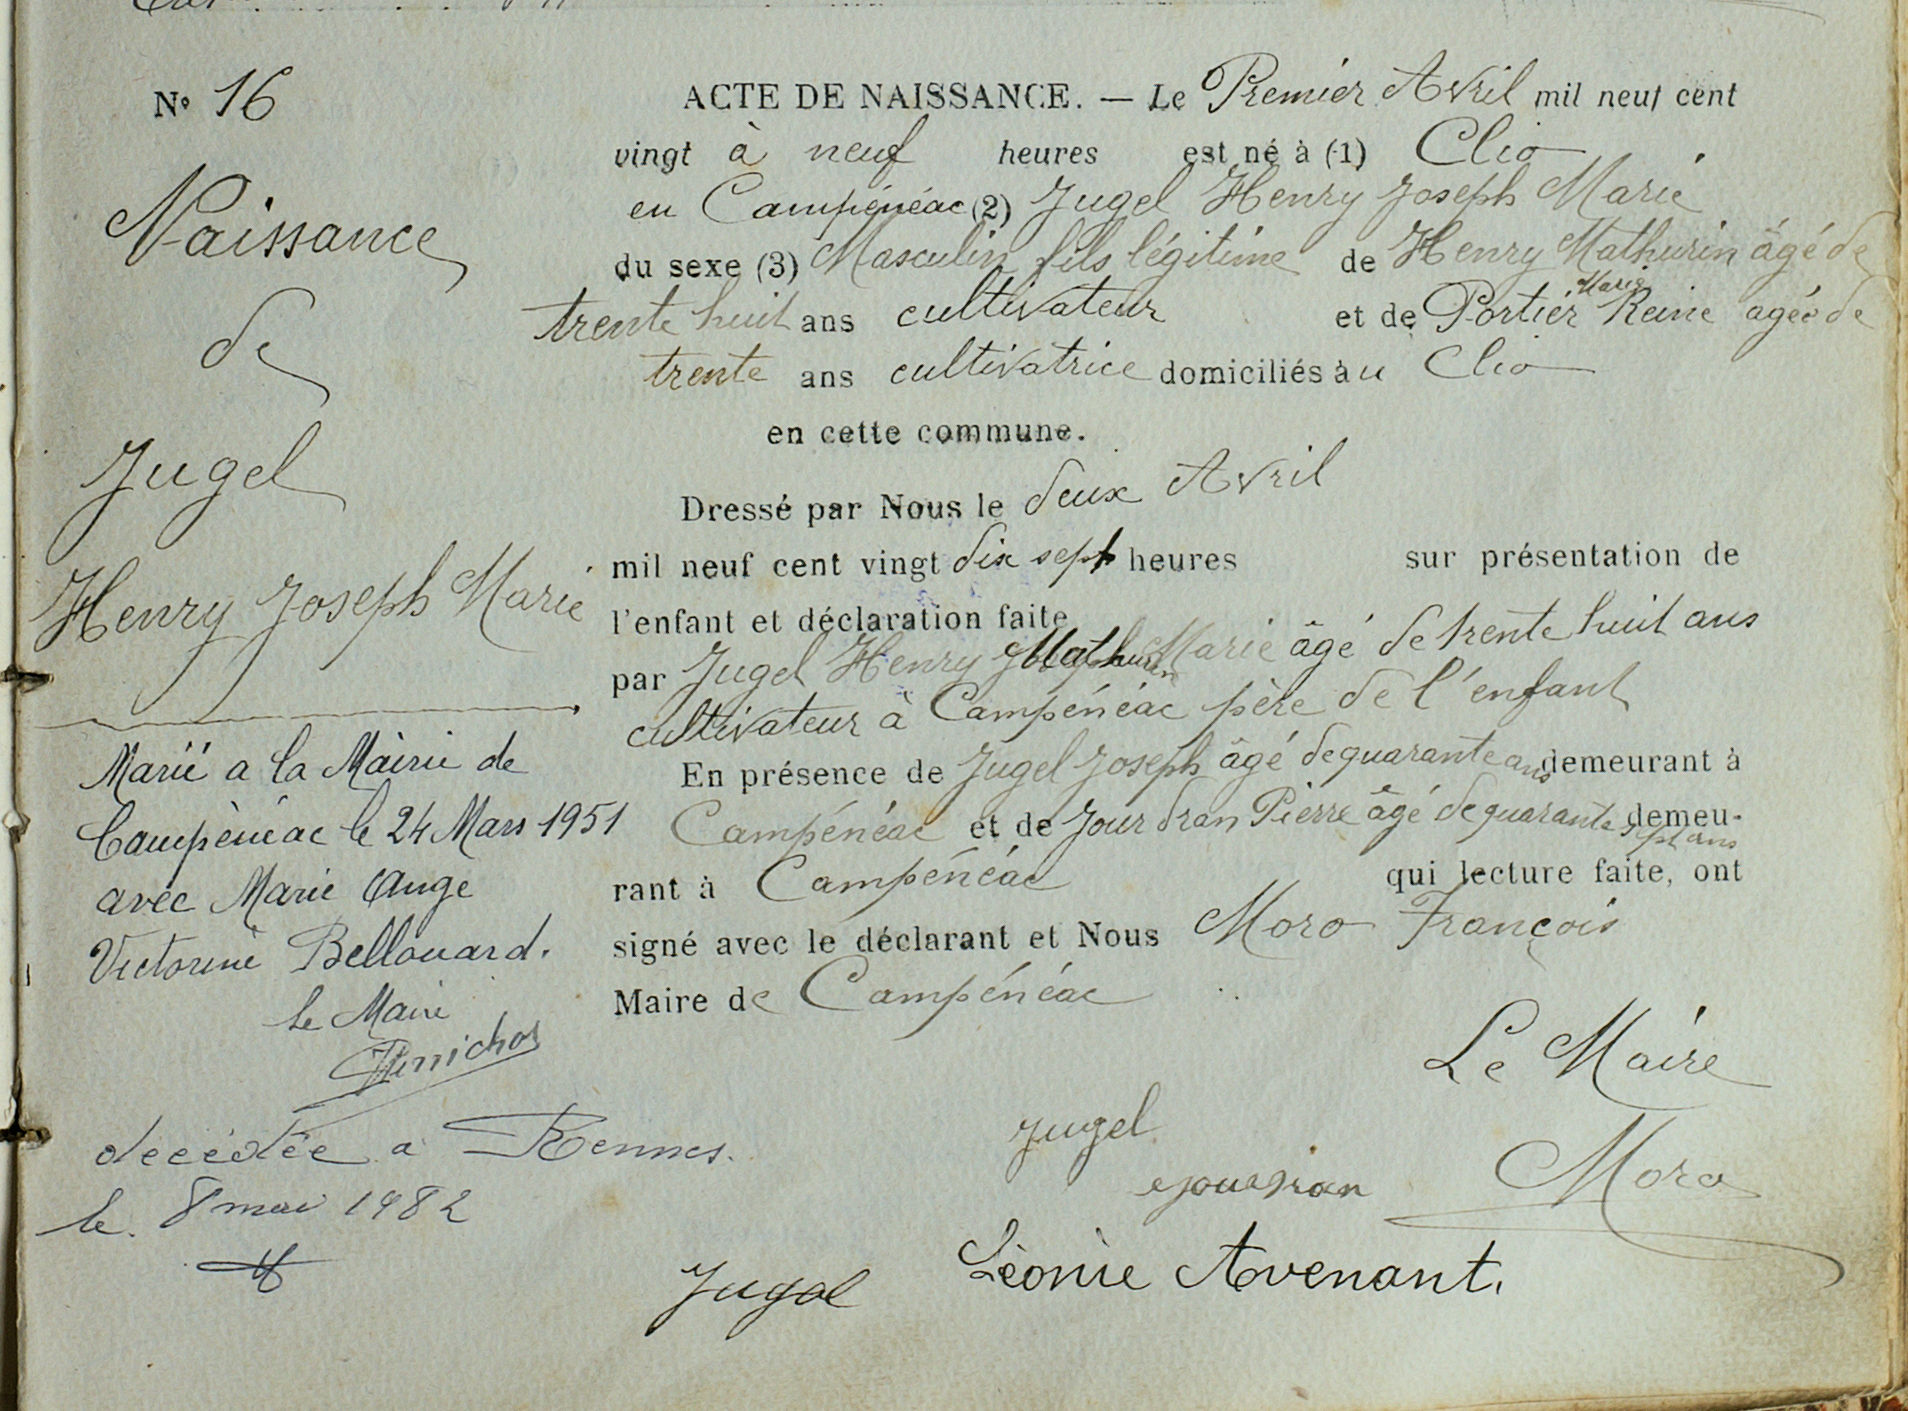 N° 16
Naissance
de
Jugel
Henry Joseph Marie
Marié a la Mairie de
Campénéac le 24 Mars 1951
avec Marie Ange
Victorine Bellouard.
le Maire
décédée a Rennes.
le 8 mai 1982
ACTE DE NAISSANCE. — Le Premier Avril mil neuf cent
vingt à neuf heures est né à (1) Clio
en Campénéac (2) Jugel Henry Joseph Marie
du sexe (3) Masculin fils légitime de Henry Mathurin âgé de
Marie
trente huit ans cultivateur et de Portier Reine agée de
trente ans cultivatrice domiciliés au Clio
en cette commune.
Dressé par Nous le deux Avril
mil neuf cent vingt dix sept heures sur présentation de
l'enfant et déclaration faite
par Jugel Henry Mathurin Marie âgé de trente huit ans
cultivateur à Campénéac père de l'enfant
En présence de Jugel Joseph âgé de quarante ans demeurant à
Campénéac et de Jourdran Pierre âgé de quarante sept ans demeu-
rant à Campénéac qui lecture faite, ont
signé avec le déclarant et Nous Moro François
Maire de Campénéac
Le Maire
Jugel
ejourdran Moro
Jugel Léonie Avenant.